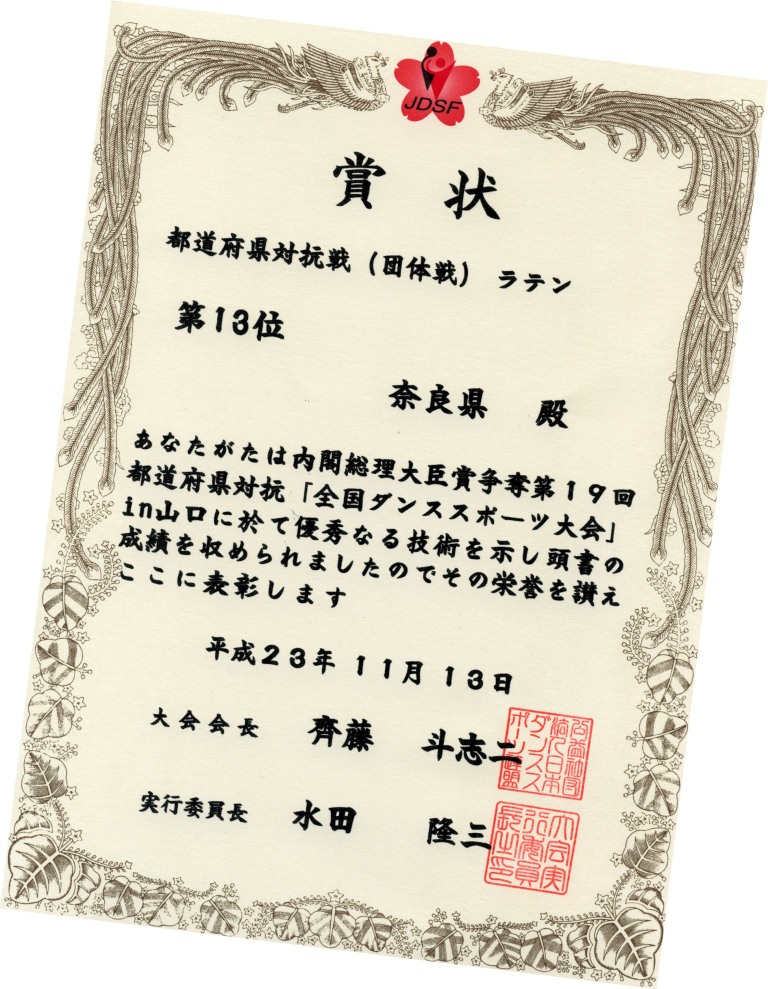 JDSF
賞状
都道府県対抗戦（団体戦） ラテン
第13位
奈良県 殿
あなたがたは内閣総理大臣賞争奪第１９回
都道府県対抗「全国ダンススポーツ大会」
in山口に於て優秀なる技術を示し頭書の
成績を収められましたのでその栄誉を讃え
ここに表彰します
平成２３年 １１月 １３日
大会会長 齊藤 斗志二
実行委員長 水田 隆三